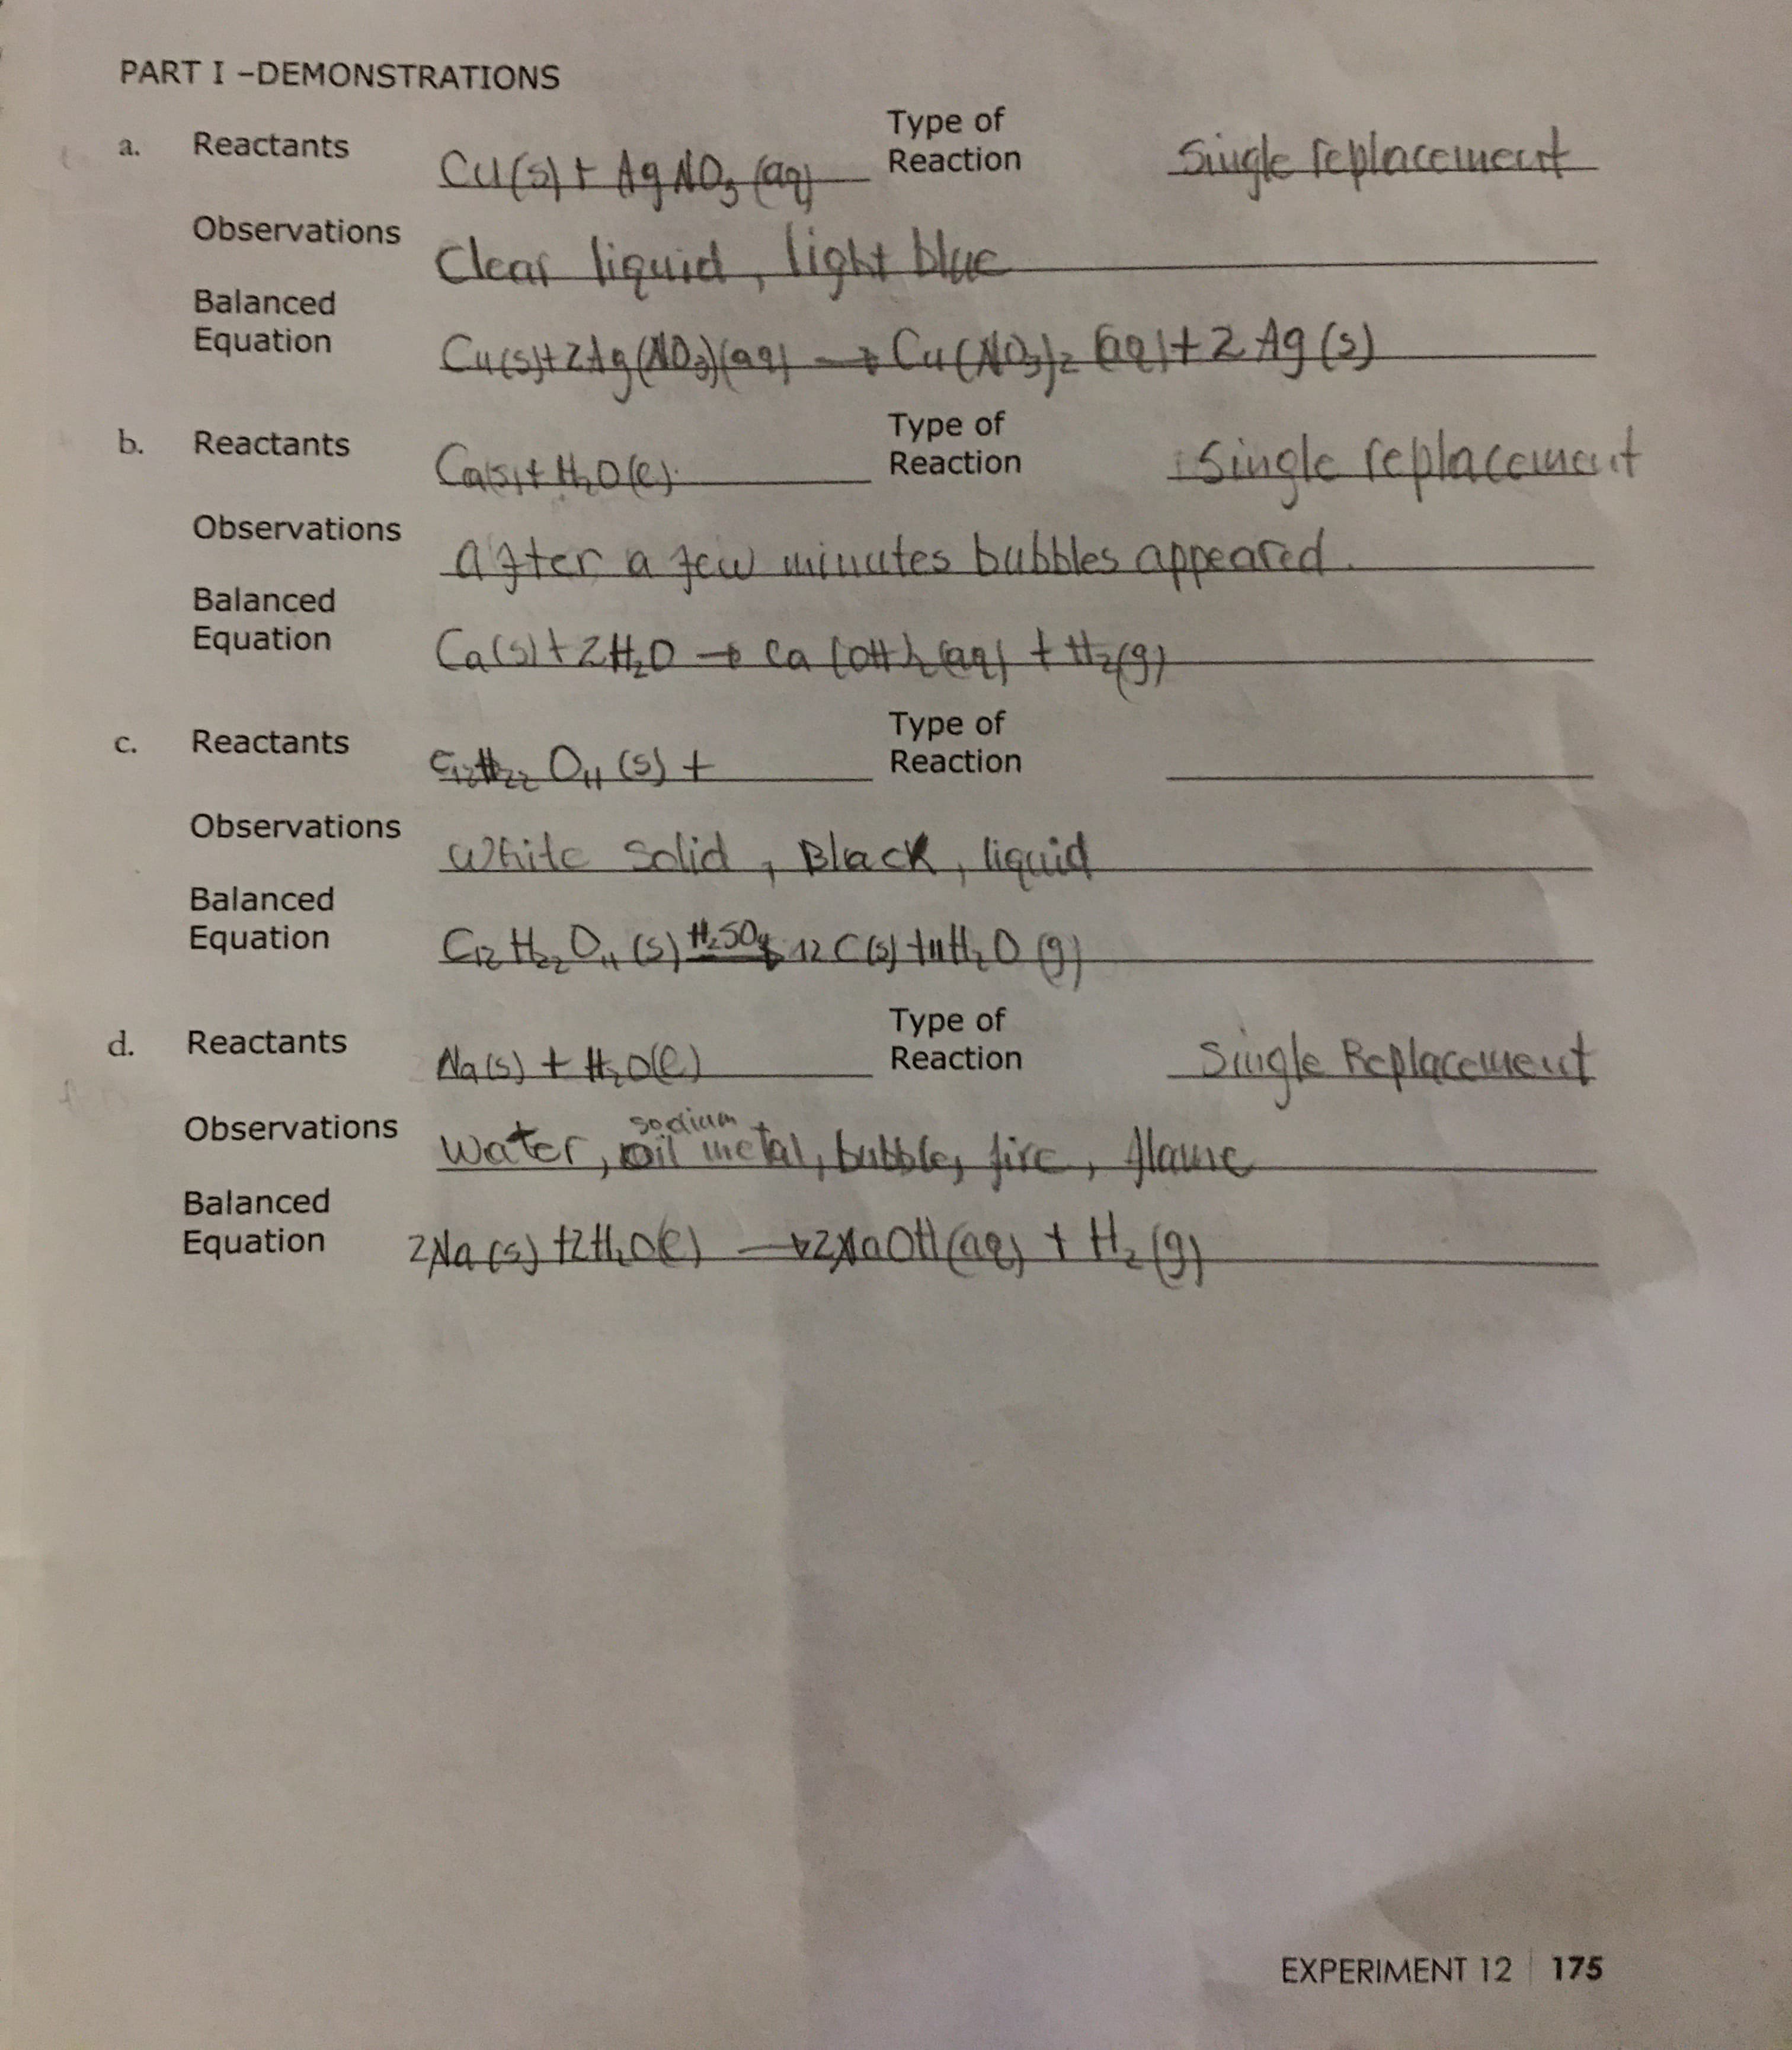 PART I –DEMONSTRATIONS
a. Reactants Cu(s) + AgNO3 (aq) Type of Reaction Single replacement
Observations Clear liquid, light blue
Balanced Equation Cu(s)+2Ag(NO3)(aq) → Cu(NO3)2 (aq)+2 Ag(s)
b. Reactants Ca(s)+H2O(l). Type of Reaction Single replacement
Observations After a few minutes bubbles appeared.
Balanced Equation Ca(s)+2H2O → Ca(OH)2(aq) + H2(g)
c. Reactants C12H22O11 (s) + Type of Reaction
Observations White solid, Black, liquid
Balanced Equation C12H22O11 (s) H2SO4→ 12 C(s) +11H2O (g)
d. Reactants Na(s) + H2O(l) Type of Reaction Single Replacement
Observations Water, oil sodium metal, bubble, fire, flame
Balanced Equation 2Na(s) +2H2O(l) → 2NaOH(aq) + H2(g)
EXPERIMENT 12 | 175